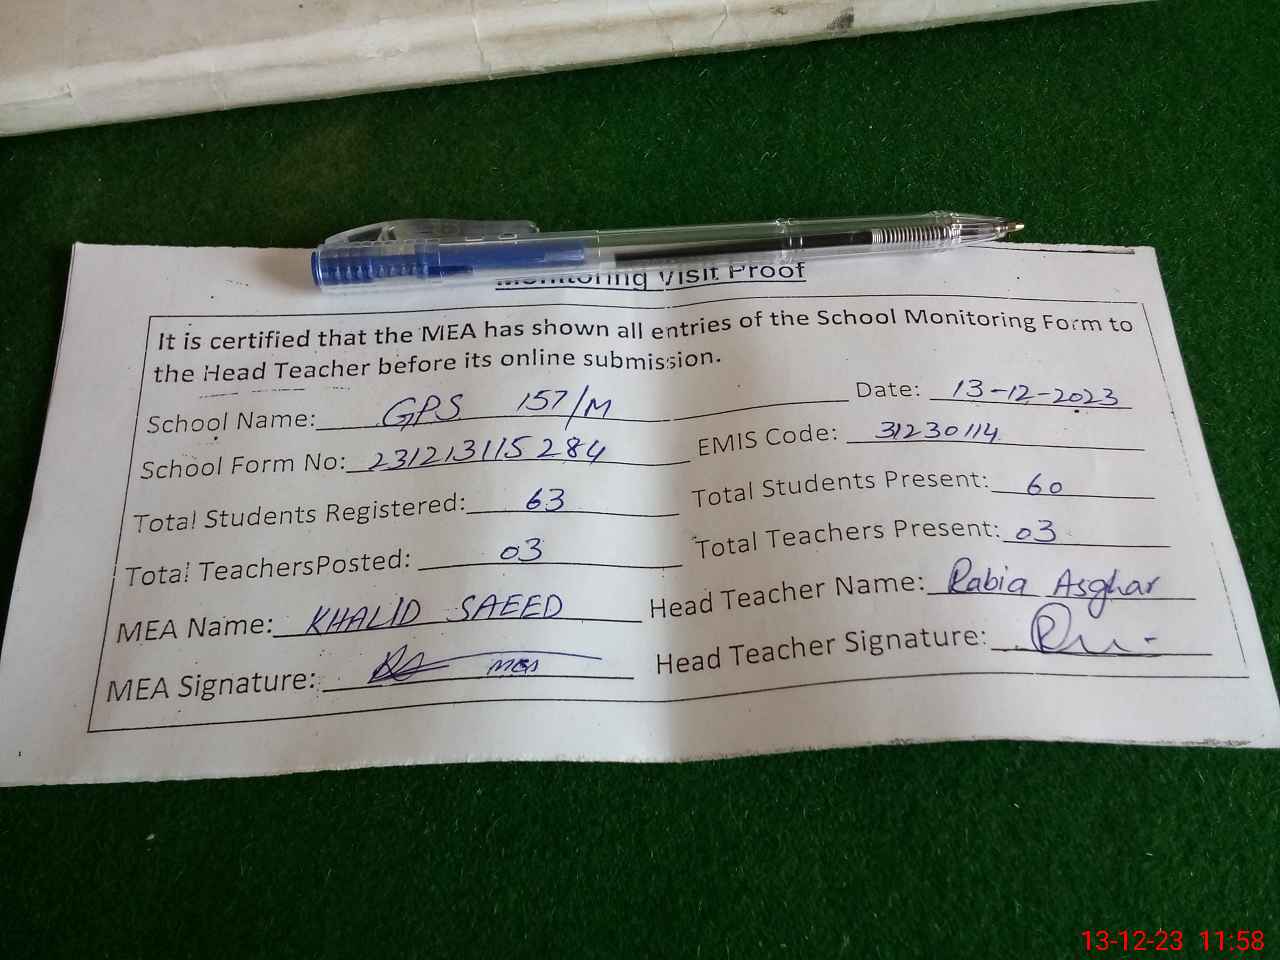 Monitoring Visit Proof
It is certified that the MEA has shown all entries of the School Monitoring Form to
the Head Teacher before its online submission.
School Name: GPS 157/M Date: 13-12-2023
School Form No: 231213115284 EMIS Code: 31230114
Total Students Registered: 63 Total Students Present: 60
Total TeachersPosted: 03 Total Teachers Present: 03
MEA Name: KHALID SAEED Head Teacher Name: Rabia Asghar
MEA Signature: MEA Head Teacher Signature:
13-12-23 11:58